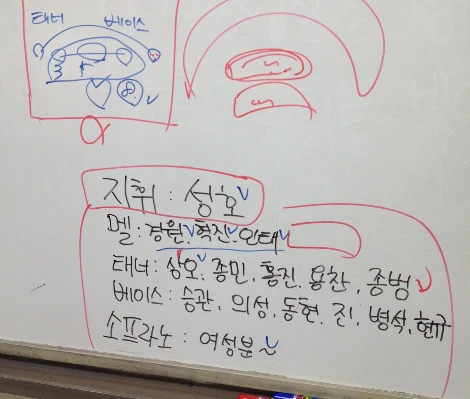 태너 베이스
지휘 : 성호
멜 : 경원, 혁진, 인태
태너 : 상오, 종민, 홍진, 용찬, 종범
베이스 : 승관, 의성, 동현, 진, 병석, 현규
소프라노 : 여성분